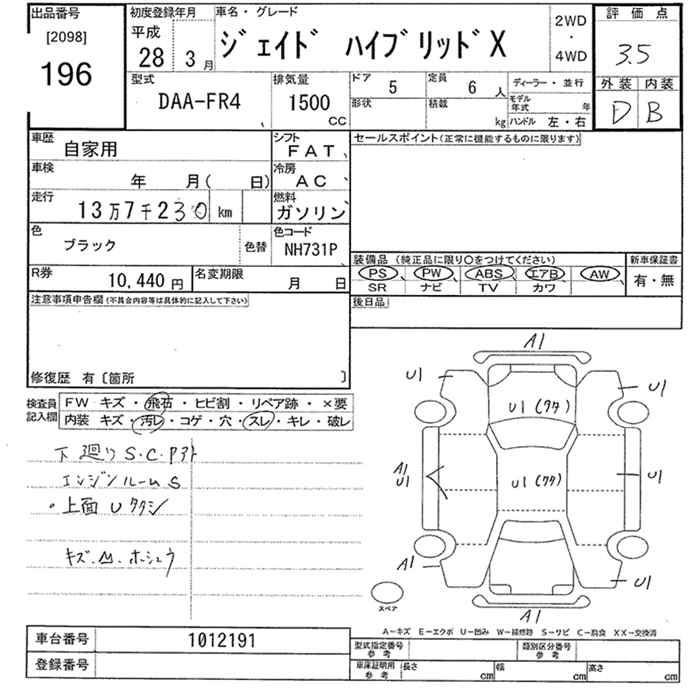 出品番号 初度登録年月 車名・グレード 2WD・4WD 評価点
[2098] 平成 ジェイド ハイブリッドX 3.5
196 28年 3月 外装 内装
型式 排気量 ドア 5 定員 6人 ディーラー・並行 D B
DAA-FR4 1500cc 形状 積載 kg モデル年式 年 ハンドル 左・右
車歴 自家用 シフト FAT セールスポイント(正常に機能するものに限ります)
車検 年 月( 日) 冷房 AC
走行 13万7千230km 燃料 ガソリン
色 ブラック 色替 色コード NH731P 装備品 (純正品に限り○をつけてください) 新車保証書
PS PW ABS エアB AW 有・無
R券 10,440円 名変期限 月 日 SR ナビ TV カワ
注意事項申告欄(不具合内容等は具体的に記入して下さい) 後日品
修復歴 有〔箇所 〕
検査員記入欄 FW キズ・飛石・ヒビ割・リペア跡・×要
内装 キズ・汚レ・コゲ・穴・スレ・キレ・破レ
下廻りS.C.Pアト
エンジンルームS
・上面Uタタン
キズ.凹.ホシュウ
A1
U1 U1
U1(タタ)
A1
U1 U1(タタ) U1
A1 U1
スペア A1
A-キズ E-エクボ U-凹み W-補修跡 S-サビ C-腐食 XX-交換済
車台番号 1012191
型式指定番号 参考 類別区分番号 参考
登録番号 車庫証明用 参考 長さ cm 幅 cm 高さ cm